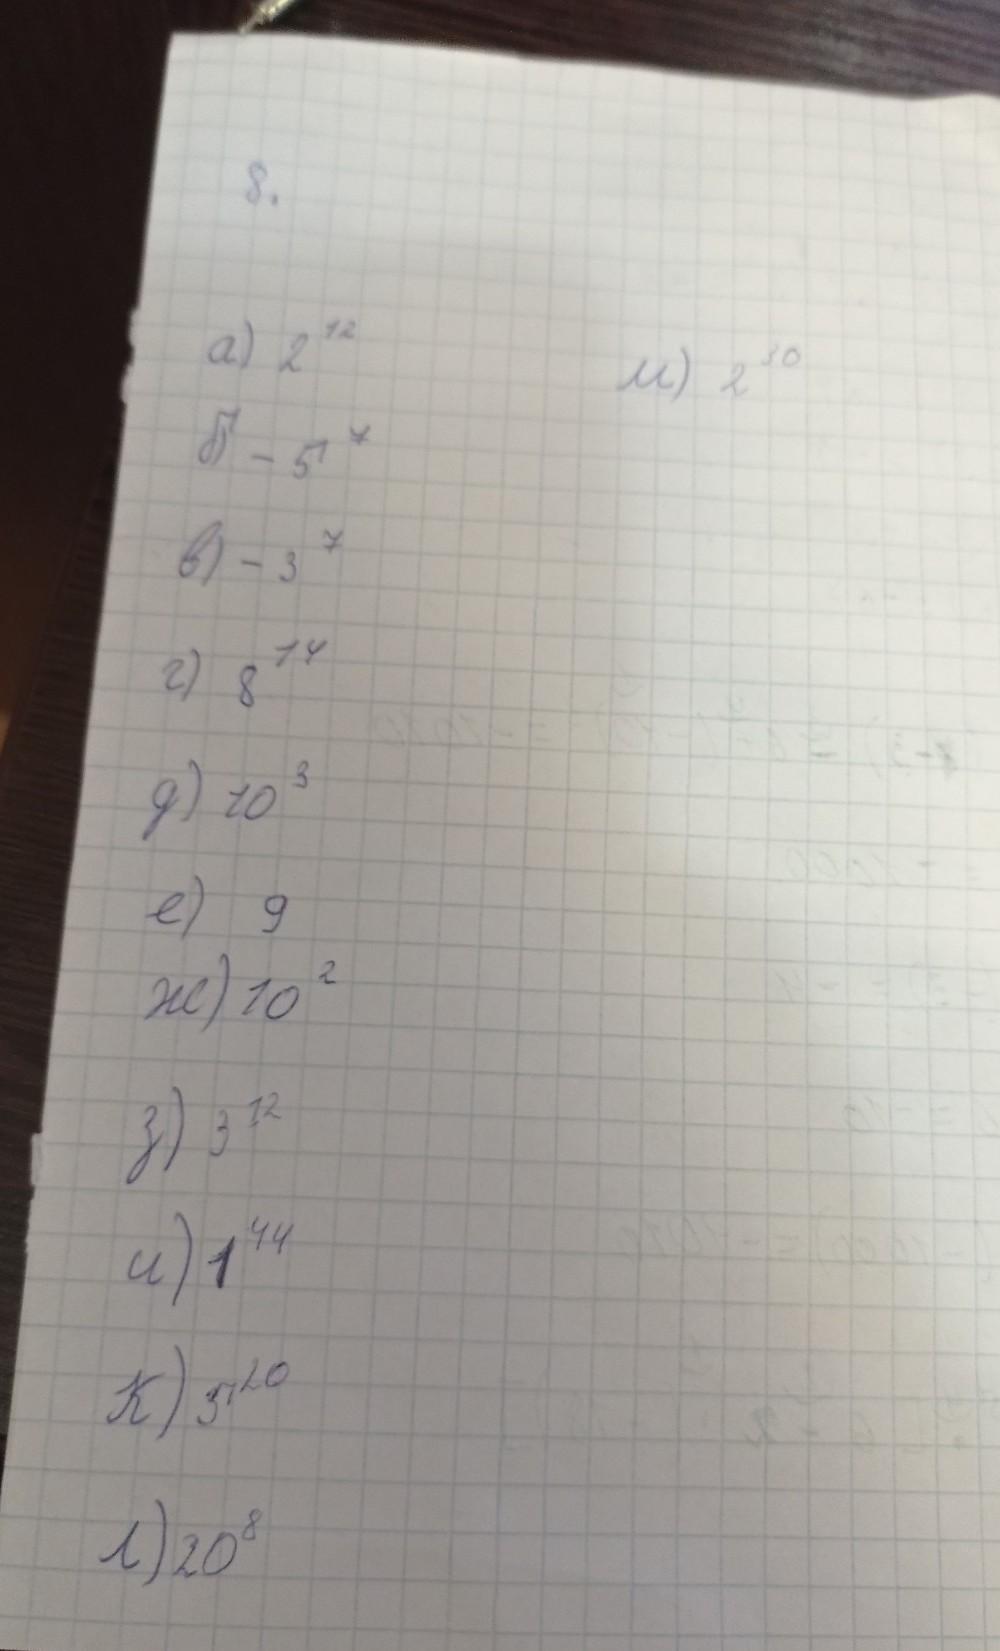 8.
а) 2¹²
б - 5⁷
в) - 3⁷
г) 8¹⁴
д) 10³
е) 9
ж) 10²
з) 3¹²
и) 1⁴⁴
к) 5²⁰
л) 20⁸
м) 2³⁰